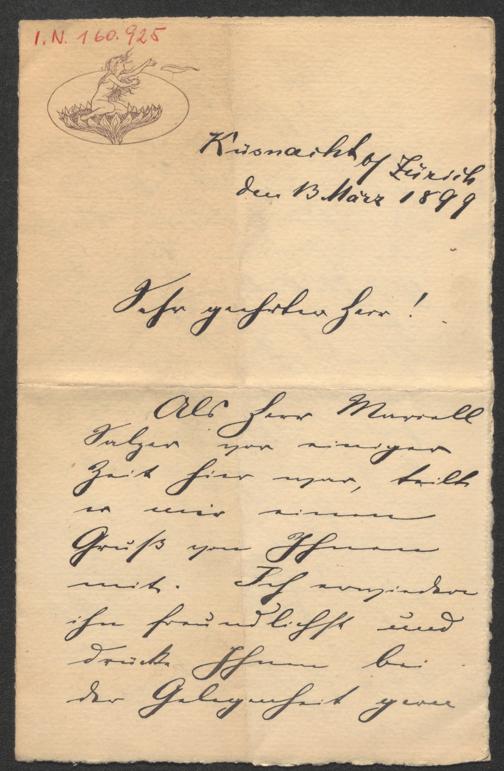 I.N. 160.925
Küsnacht b/ Zürich
den 13. März 1899
Sehr geehrter Herr!
Als Herr Marcell
Salzer vor einiger
Zeit hier war, teilte
er mir einen
Gruß von Ihnen
mit. Ich erwiedere
ihn freundlichst und
drücke Ihnen bei
der Gelegenheit gern